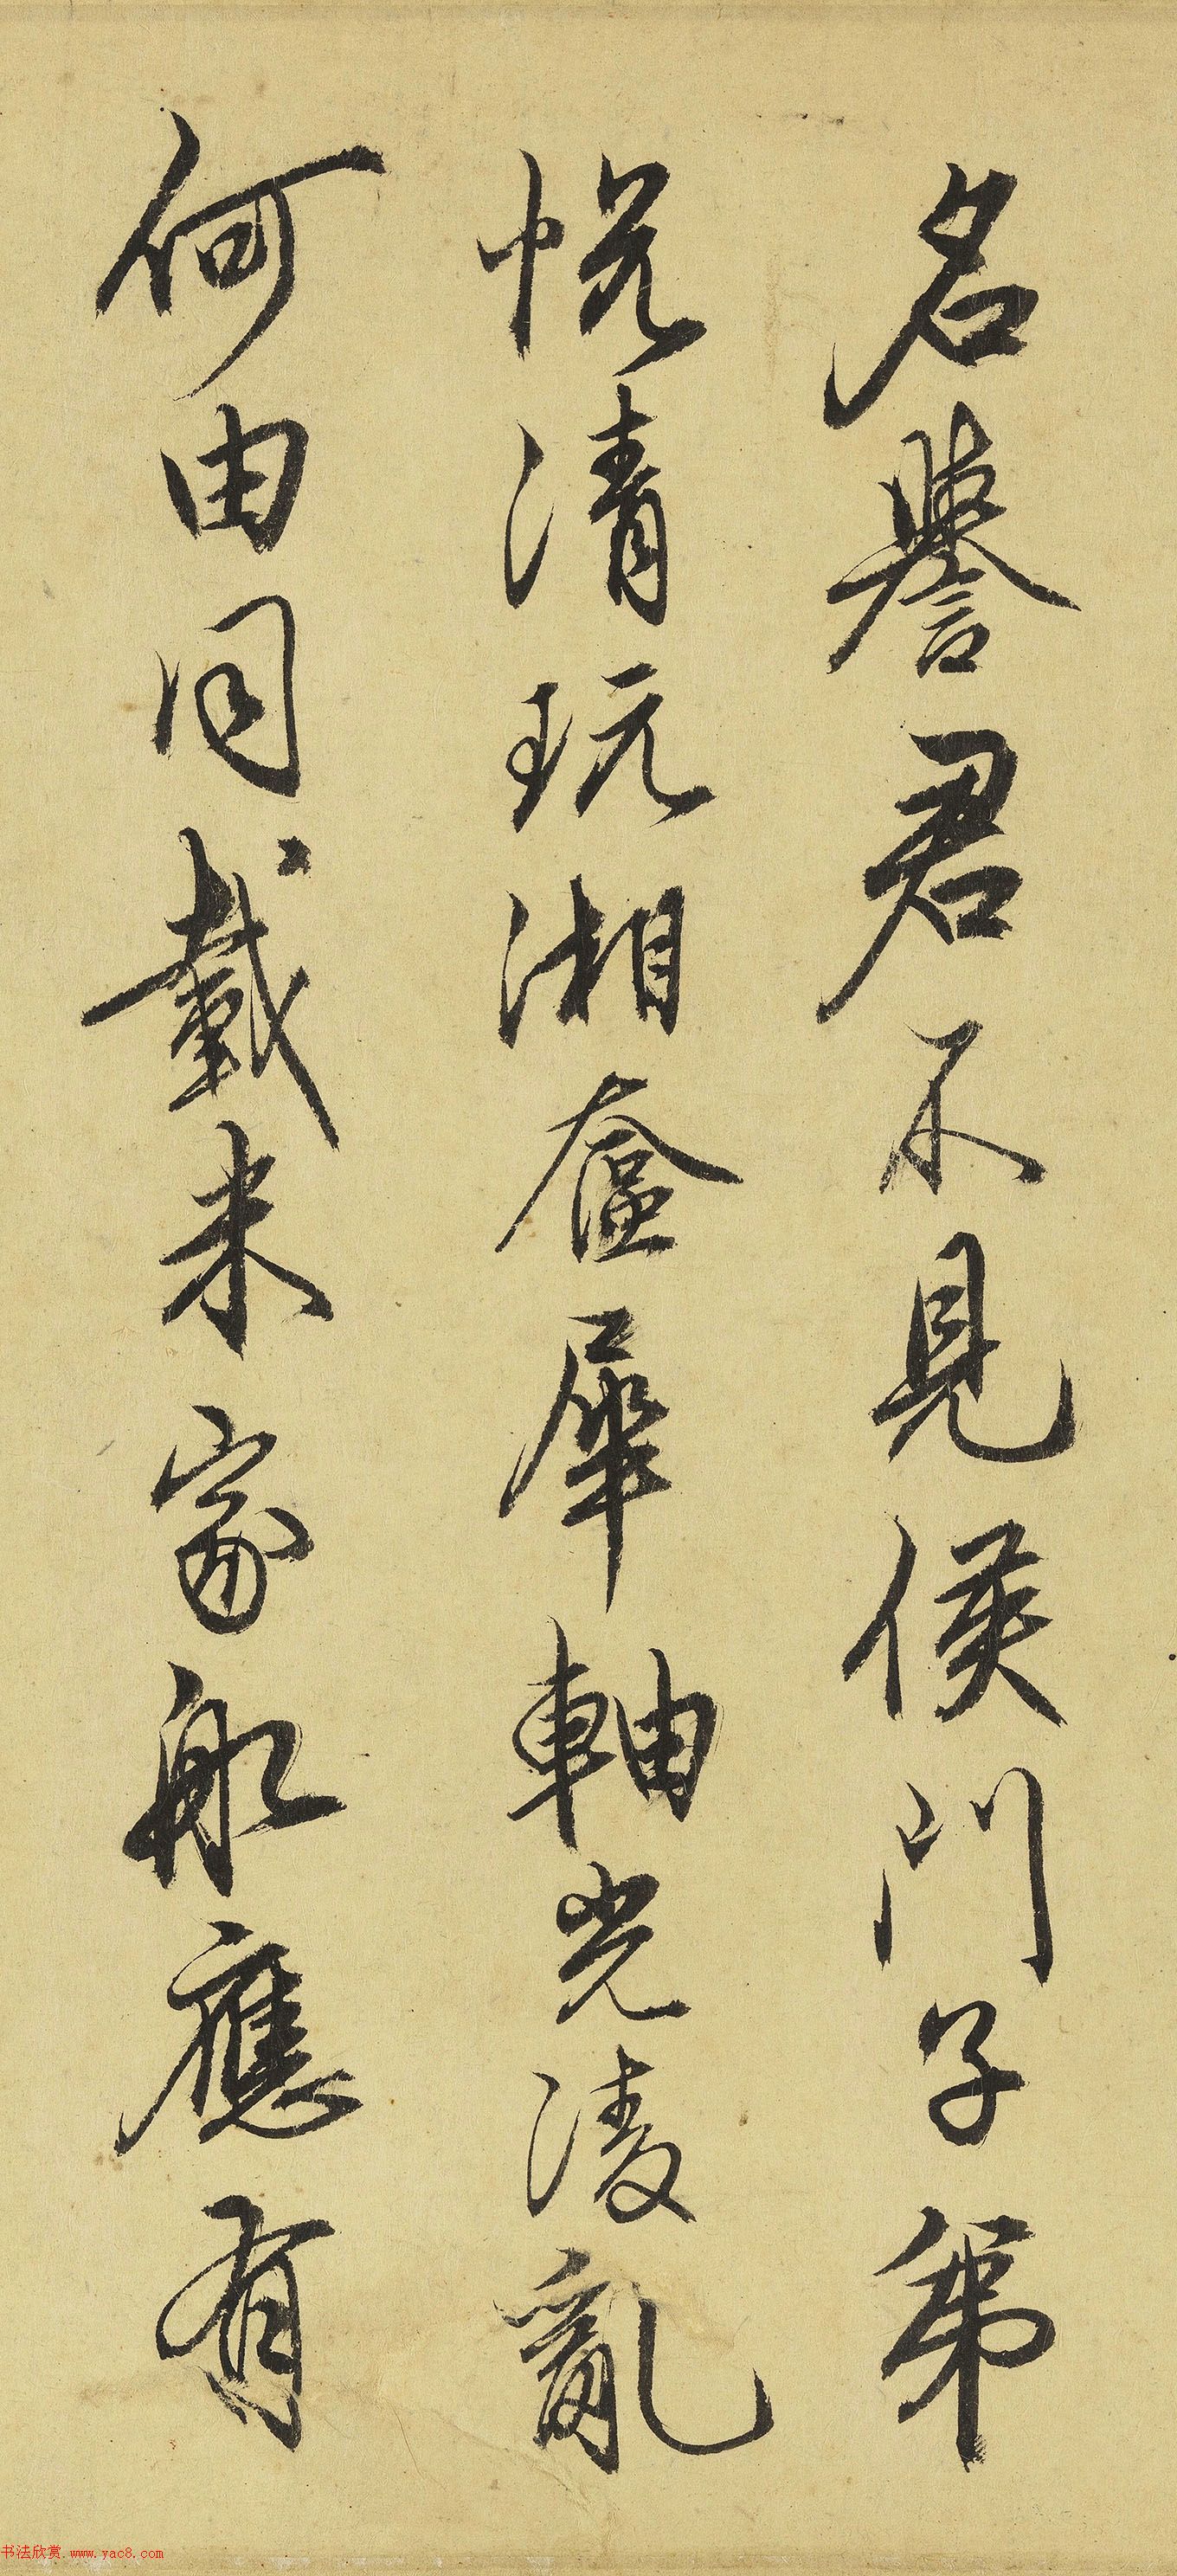 名譽君不見侯門子弟
怳清玩湘奩犀軸光淩亂
何由同載米家船應有
书法欣赏.www.yac8.com